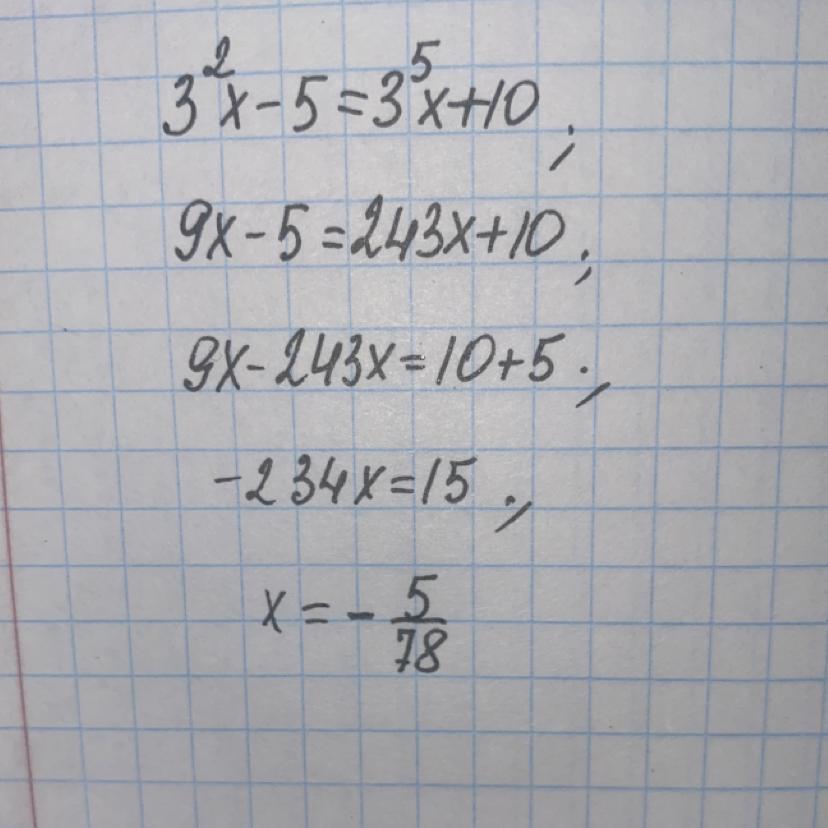 3²x-5=3⁵x+10;
9x-5=243x+10;
9x-243x=10+5;
-234x=15;
x=-5/78